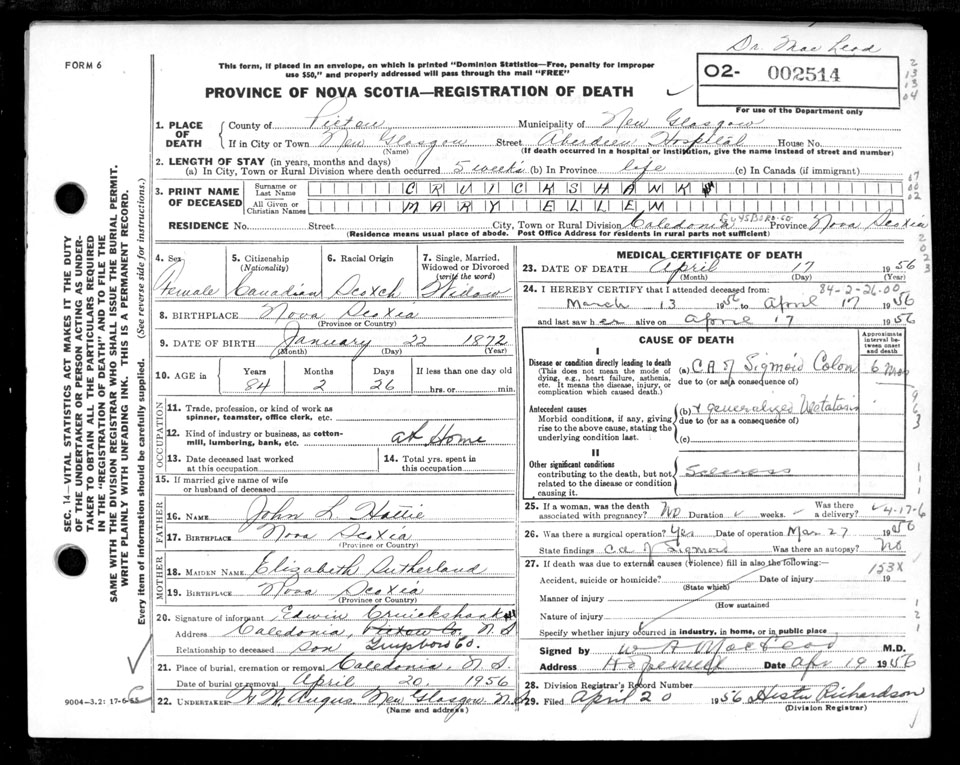 Dr. MacLeod
FORM 6
This form, if placed in an envelope, on which is printed "Dominion Statistics—Free, penalty for improper
use $50," and properly addressed will pass through the mail "FREE"
O2- 002514
For use of the Department only
PROVINCE OF NOVA SCOTIA—REGISTRATION OF DEATH
1. PLACE OF DEATH
County of Pictou Municipality of New Glasgow
If in City or Town New Glasgow Street Aberdeen Hospital House No.
(Name) (If death occurred in a hospital or institution, give the name instead of street and number)
2. LENGTH OF STAY (in years, months and days)
(a) In City, Town or Rural Division where death occurred 5 weeks (b) In Province life (c) In Canada (if immigrant)
3. PRINT NAME OF DECEASED
Surname or Last Name CRUICKSHANK
All Given or Christian Names MARY ELLEN
RESIDENCE No. Street City, Town or Rural Division Caledonia GUYSBORO-CO Province Nova Scotia
(Residence means usual place of abode. Post Office Address for residents in rural parts not sufficient)
4. Sex Female
5. Citizenship (Nationality) Canadian
6. Racial Origin Scotch
7. Single, Married, Widowed or Divorced (write the word) Widow
8. BIRTHPLACE Nova Scotia
(Province or Country)
9. DATE OF BIRTH January 22 1872
(Month) (Day) (Year)
10. AGE in Years Months Days If less than one day
84 2 26 hrs. or min.
OCCUPATION
11. Trade, profession, or kind of work as spinner, teamster, office clerk, etc.
12. Kind of industry or business, as cotton-mill, lumbering, bank, etc. at Home
13. Date deceased last worked at this occupation
14. Total yrs. spent in this occupation
15. If married give name of wife or husband of deceased
FATHER
16. NAME John L. Hattie
17. BIRTHPLACE Nova Scotia
(Province or Country)
MOTHER
18. MAIDEN NAME Elizabeth Sutherland
19. BIRTHPLACE Nova Scotia
(Province or Country)
20. Signature of informant Edwin Cruickshank
Address Caledonia, Pictou Co. N.S
Relationship to deceased son Guysboro Co.
21. Place of burial, cremation or removal Caledonia, N.S.
Date of burial or removal April 20, 1956
22. UNDERTAKER W. Angus New Glasgow N.S
(Name and address)
9004—3.2: 17-6-55
MEDICAL CERTIFICATE OF DEATH
23. DATE OF DEATH April 17 1956
(Month) (Day) (Year)
24. I HEREBY CERTIFY that I attended deceased from: 84-2-26-00
March 13 1956 to April 17 1956
and last saw her alive on April 17 1956
CAUSE OF DEATH
Approximate interval between onset and death
I
Disease or condition directly leading to death
(This does not mean the mode of dying, e.g., heart failure, asthenia, etc. It means the disease, injury, or complication which caused death.)
(a) CA of Sigmoid Colon 6 mos
due to (or as a consequence of)
Antecedent causes
Morbid conditions, if any, giving rise to the above cause, stating the underlying condition last.
(b) & generalized Metatasis
due to (or as a consequence of)
(c)
II
Other significant conditions
contributing to the death, but not related to the disease or condition causing it.
25. If a woman, was the death associated with pregnancy? No Duration weeks. Was there a delivery? 4-17-6
26. Was there a surgical operation? Yes Date of operation Mar 27 1956
State findings Ca of Sigmoid Was there an autopsy? No
27. If death was due to external causes (violence) fill in also the following:—
153X
Accident, suicide or homicide? Date of injury 19
(State which)
Manner of injury
(How sustained)
Nature of injury
Specify whether injury occurred in industry, in home, or in public place
Signed by W A MacLeod M.D.
Address Hopewell Date Apr 19 1956
28. Division Registrar's Record Number
29. Filed April 20 1956 Hester Richardson
(Division Registrar)
SEC. 14—VITAL STATISTICS ACT MAKES IT THE DUTY
OF THE UNDERTAKER OR PERSON ACTING AS UNDER-
TAKER TO OBTAIN ALL THE PARTICULARS REQUIRED
IN THE "REGISTRATION OF DEATH" AND TO FILE THE
SAME WITH THE DIVISION REGISTRAR WHO SHALL ISSUE THE BURIAL PERMIT.
WRITE PLAINLY WITH UNFADING INK. THIS IS A PERMANENT RECORD.
Every item of information should be carefully supplied. (See reverse side for instructions.)